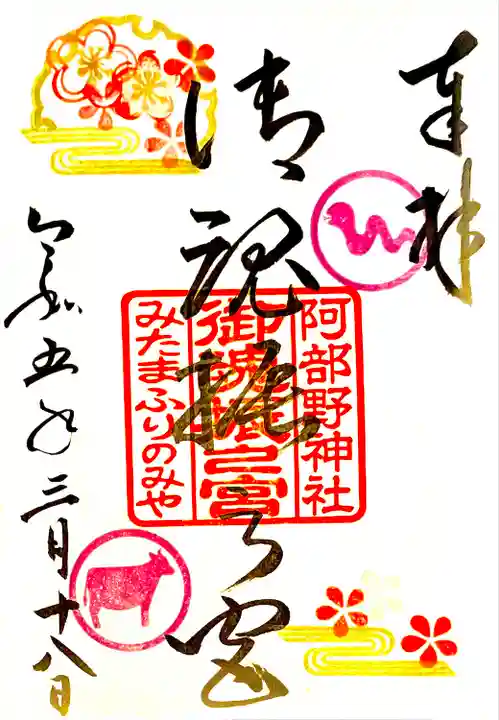 奉拝
御魂振之宮
阿部野神社
御魂振之宮
みたまふりのみや
令和五年三月十八日